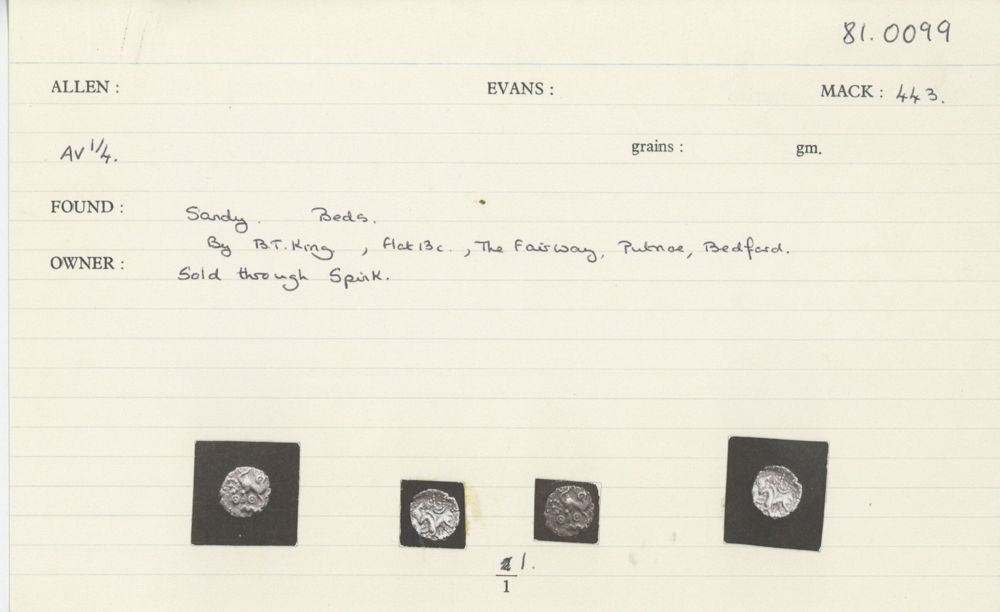 81.0099
ALLEN : EVANS : MACK : 443.
AV 1/4. grains : gm.
FOUND : Sandy. Beds.
By B.T. King, flat 13c., The Fairway, Putnoe, Bedford.
OWNER :
Sold through Spink.
1.
1